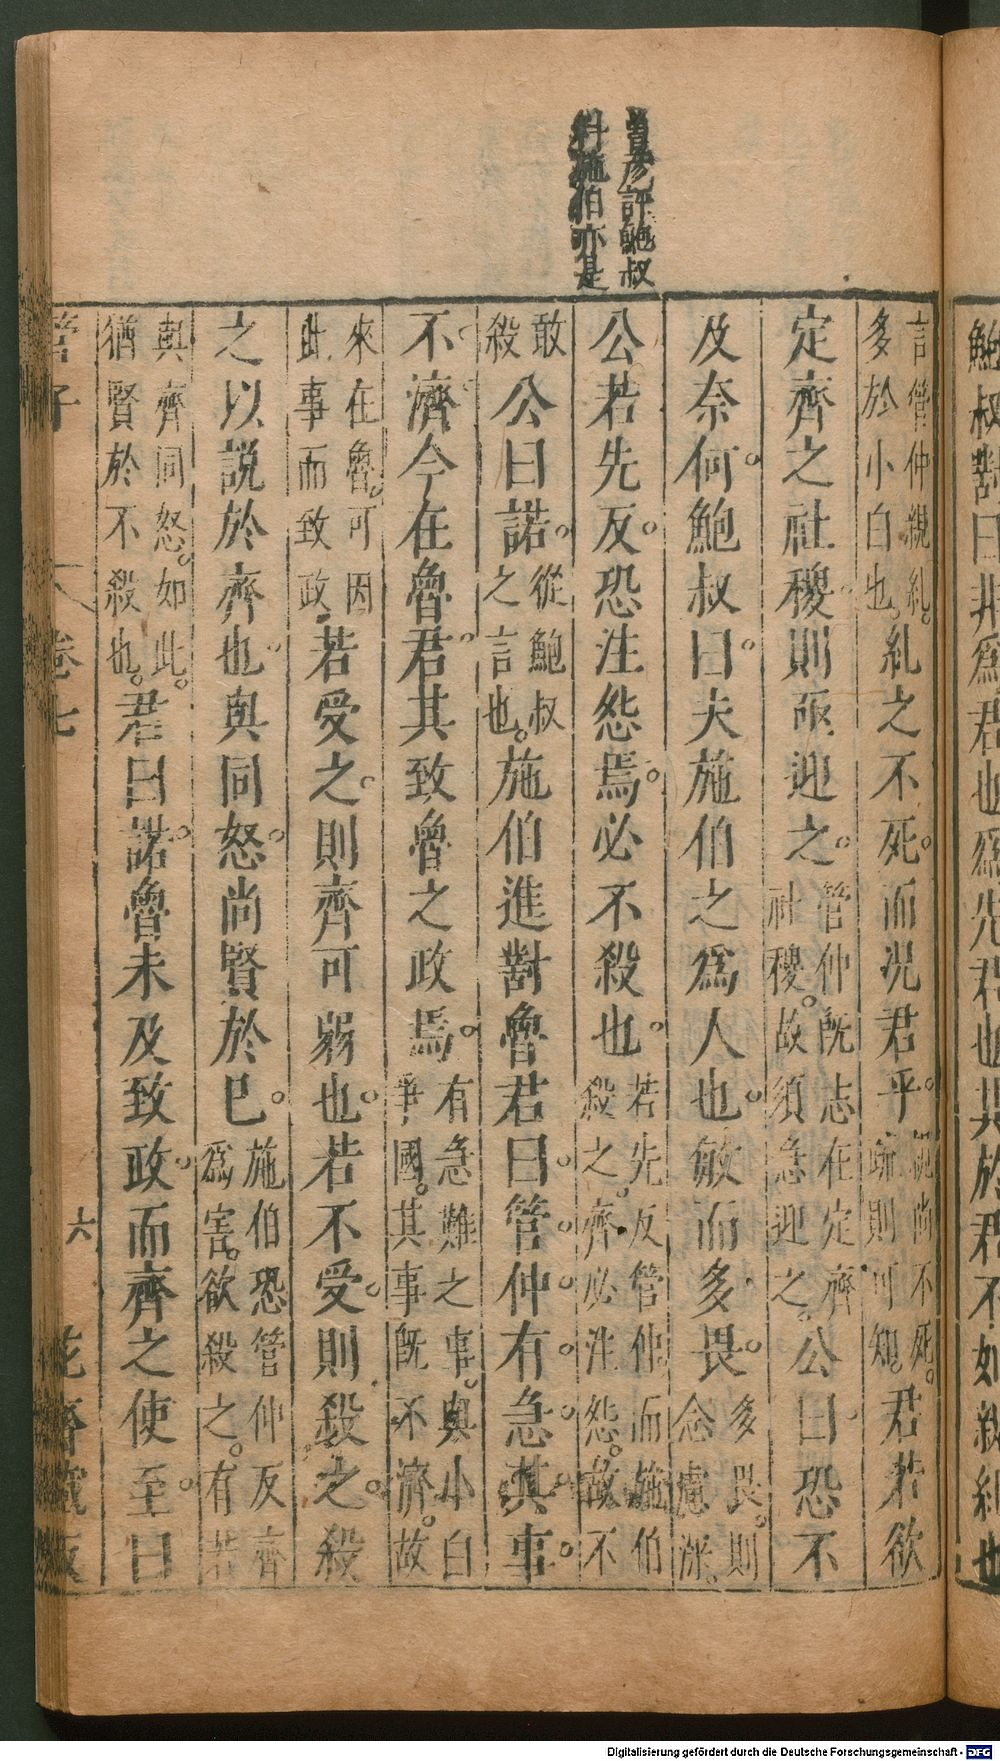 鮑叔對曰非爲君也爲先君也其於君不如親糾也
評鮑叔
料施伯亦是
言管仲親糺。多於小白也。糺之不死。而况君乎。親尚不死。疎則可知。君若欲
定齊之社稷則亟迎之。管仲旣志在定齊社稷。故須急迎之。公曰恐不
及奈何。鮑叔曰。夫施伯之爲人也。敏而多畏。多畏。則念慮深。
公若先反。恐注怨焉。必不殺也。若先反管仲。而施伯殺之。齊必注怨。故不
敢殺公曰諾。從鮑叔之言也。施伯進對魯君曰。管仲有急。其事。
不濟。今在魯君。其致魯之政焉。有急難之事。與小白爭國。其事旣不濟。故
來在魯。可因此事而致政。若受之。則齊可弱也。若不受。則殺之。殺
之以説於齊也。與同怒。尚賢於巳。施伯恐管仲反齊爲害。欲殺之。有若
與齊同怒。如此。猶賢於不殺也。君曰諾。魯未及致政。而齊之使至。曰
管子 卷七 六 花齋藏板
Digitalisierung gefördert durch die Deutsche Forschungsgemeinschaft - DFG